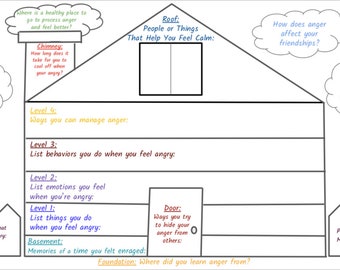 Where is a healthy place to
go to process anger
and feel better?
Chimney:
How long does it
take for you to
cool off when
your angry?
Roof:
People or Things
That Help You Feel Calm:
How does anger
affect your
friendships?
Level 4:
Ways you can manage anger:
Level 3:
List behaviors you do when you feel angry:
Level 2:
List emotions you feel
when you're angry:
Level 1:
List things you do
when you feel angry:
Door:
Ways you try
to hide your
anger from
others:
Basement:
Memories of a time you felt enraged:
Foundation: Where did you learn anger from?